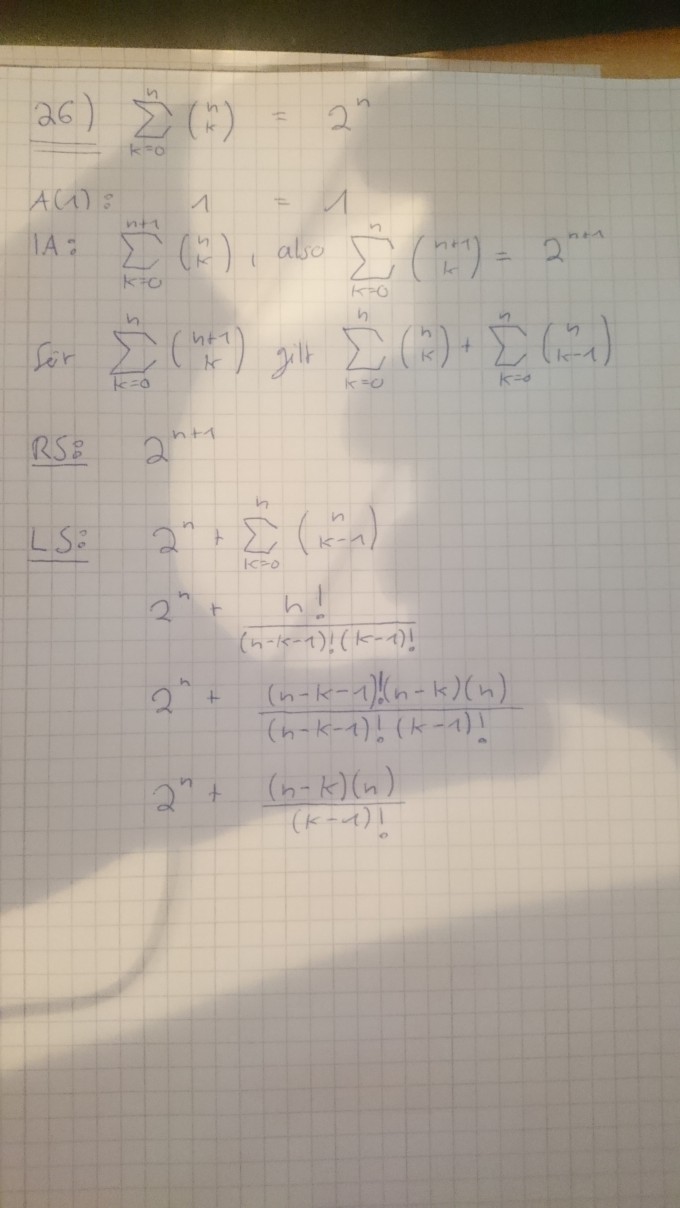 26) $\sum_{k=0}^{n} \binom{n}{k} = 2^n$
A(1): 1 = 1
IA: $\sum_{k=0}^{n+1} \binom{n}{k}$, also $\sum_{k=0}^{n} \binom{n+1}{k} = 2^{n+1}$
für $\sum_{k=0}^{n} \binom{n+1}{k}$ gilt $\sum_{k=0}^{n} \binom{n}{k} + \sum_{k=0}^{n} \binom{n}{k-1}$
RS: $2^{n+1}$
LS: $2^n + \sum_{k=0}^{n} \binom{n}{k-1}$
$2^n + \frac{n!}{(n-k-1)!(k-1)!}$
$2^n + \frac{(n-k-1)!(n-k)(n)}{(n-k-1)!(k-1)!}$
$2^n + \frac{(n-k)(n)}{(k-1)!}$